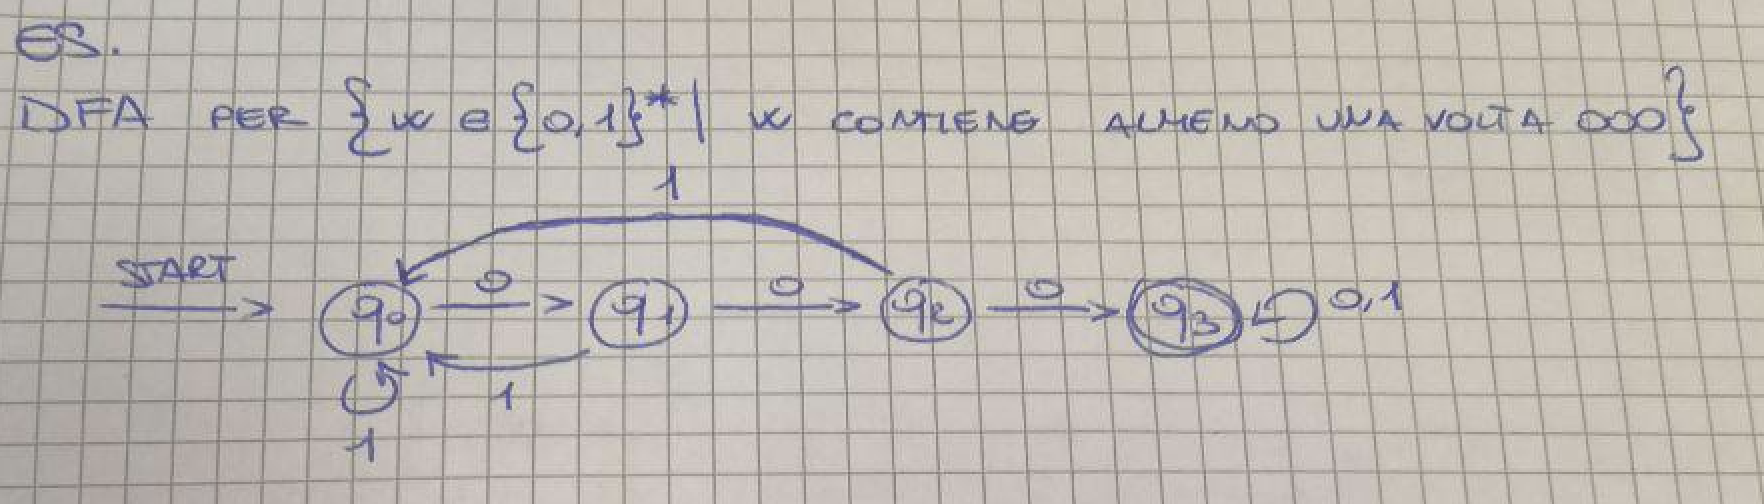 ES.
DFA PER {w ∈ {0,1}* | w CONTIENE ALMENO UNA VOLTA 000}
1
START 0 0 0
q0 q1 q2 q3 0,1
1
1